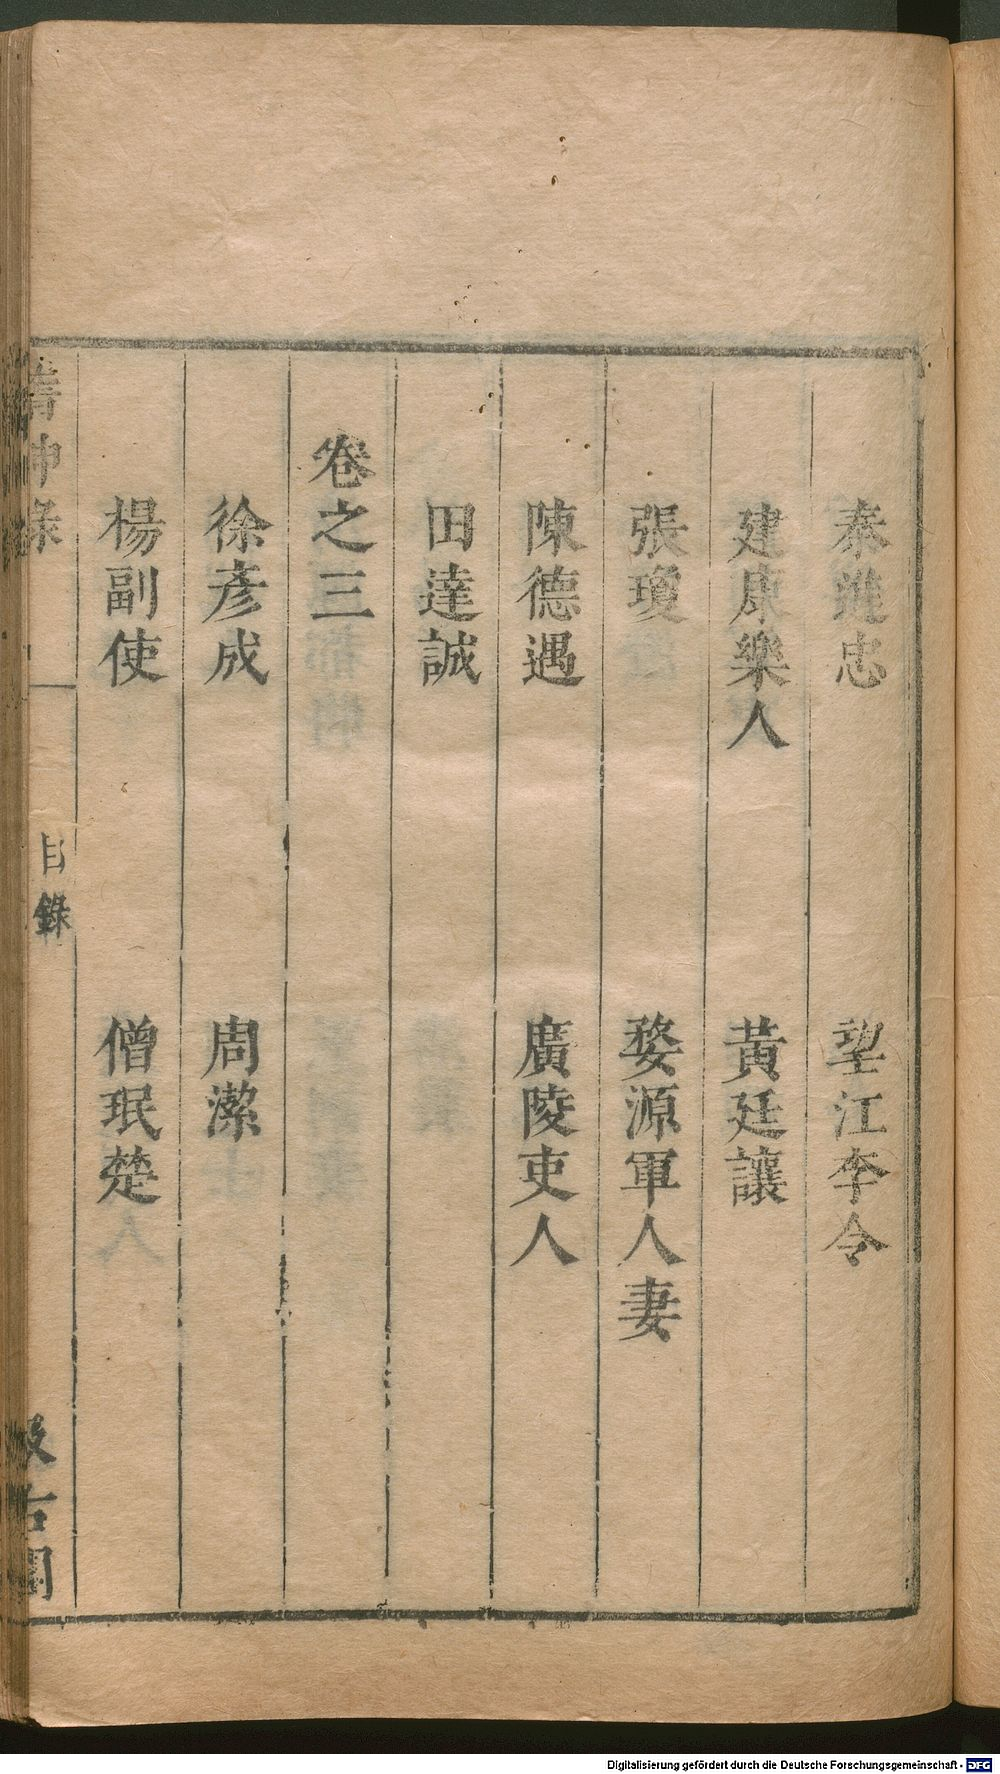 秦進忠 望江李令
建康樂人 黃廷讓
張瓊 婺源軍人妻
陳德遇 廣陵吏人
田達誠
卷之三
徐彥成 周潔
楊副使 僧珉楚
目錄
Digitalisierung gefördert durch die Deutsche Forschungsgemeinschaft - DFG